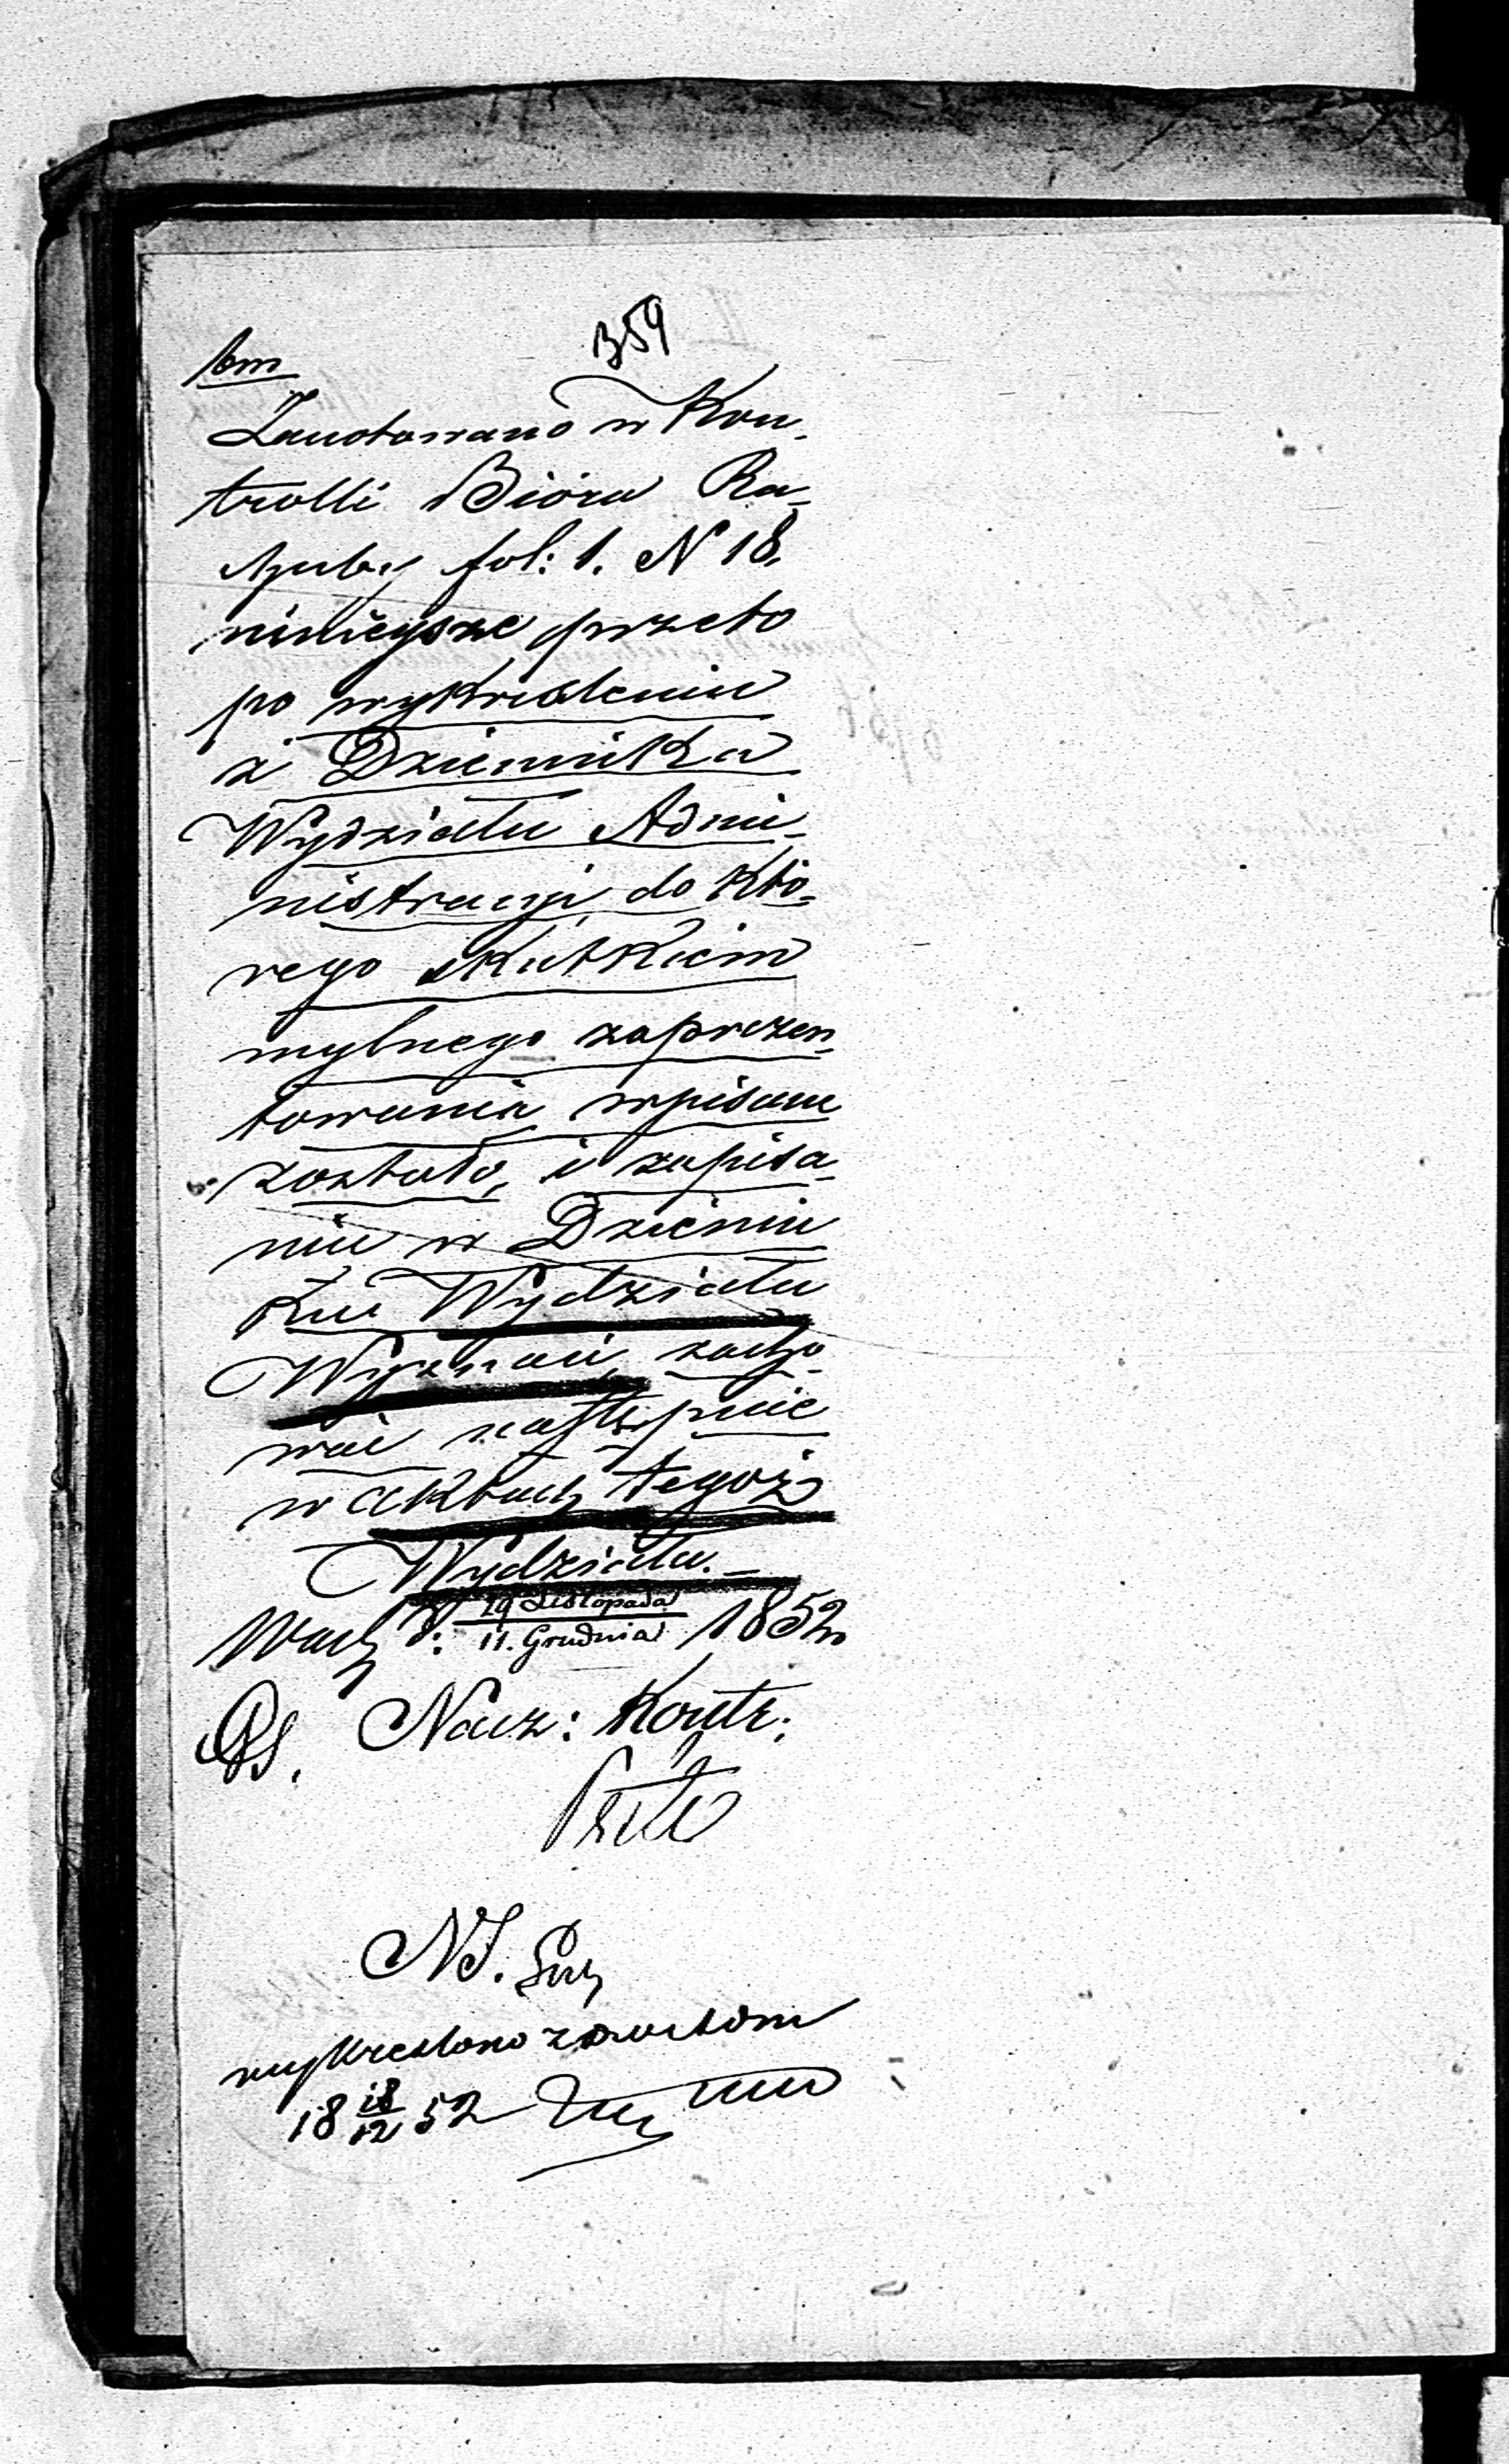 359
Zanotowano w Kon-
trolli Bióra Ra-
chuby fol: 1. N 18.
ninieysze przeto
po wykreśleniu
z Dziennika
Wydziału Admi-
nistracyi do któ-
rego skutkiem
mylnego zaprezen-
towania wpisane
zostało, i zapisa-
niu w Dzienni
ku Wydziału
Wyznań, zacho-
wać następnie
w aktach tegoż
Wydziału.
Warsz d: 29 Listopada
11. Grudnia 1852
Nacz: Kontr:
NS.
wykreślono
18 18/12 52